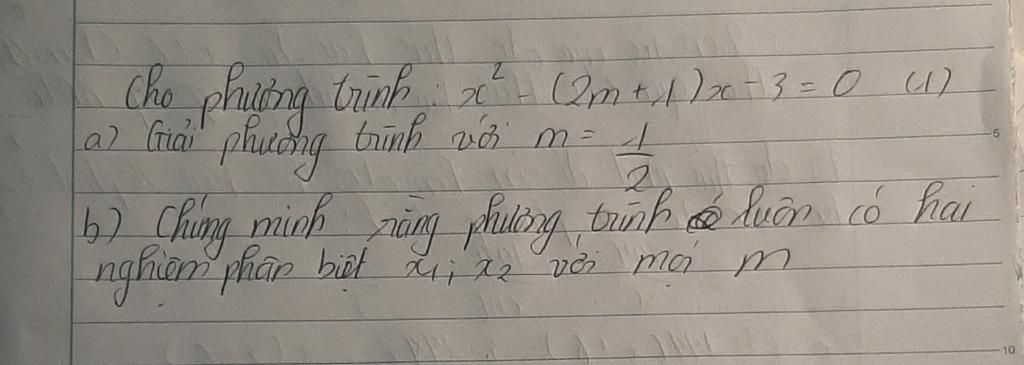 Cho phương trình: x² - (2m+1)x - 3 = 0 (1)
a) Giải phương trình với m = 1/2
b) Chứng minh rằng phương trình luôn có hai
nghiệm phân biệt x₁; x₂ với mọi m
5
10